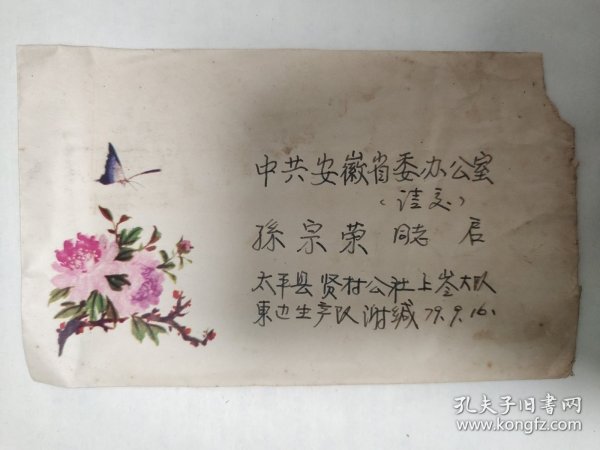 中共安徽省委办公室
（请交）
孫宗荣同志 启
太平县贤村公社上岑大队
東边生产队谢缄 79.9.16.
孔夫子旧书网
www.kongfz.com